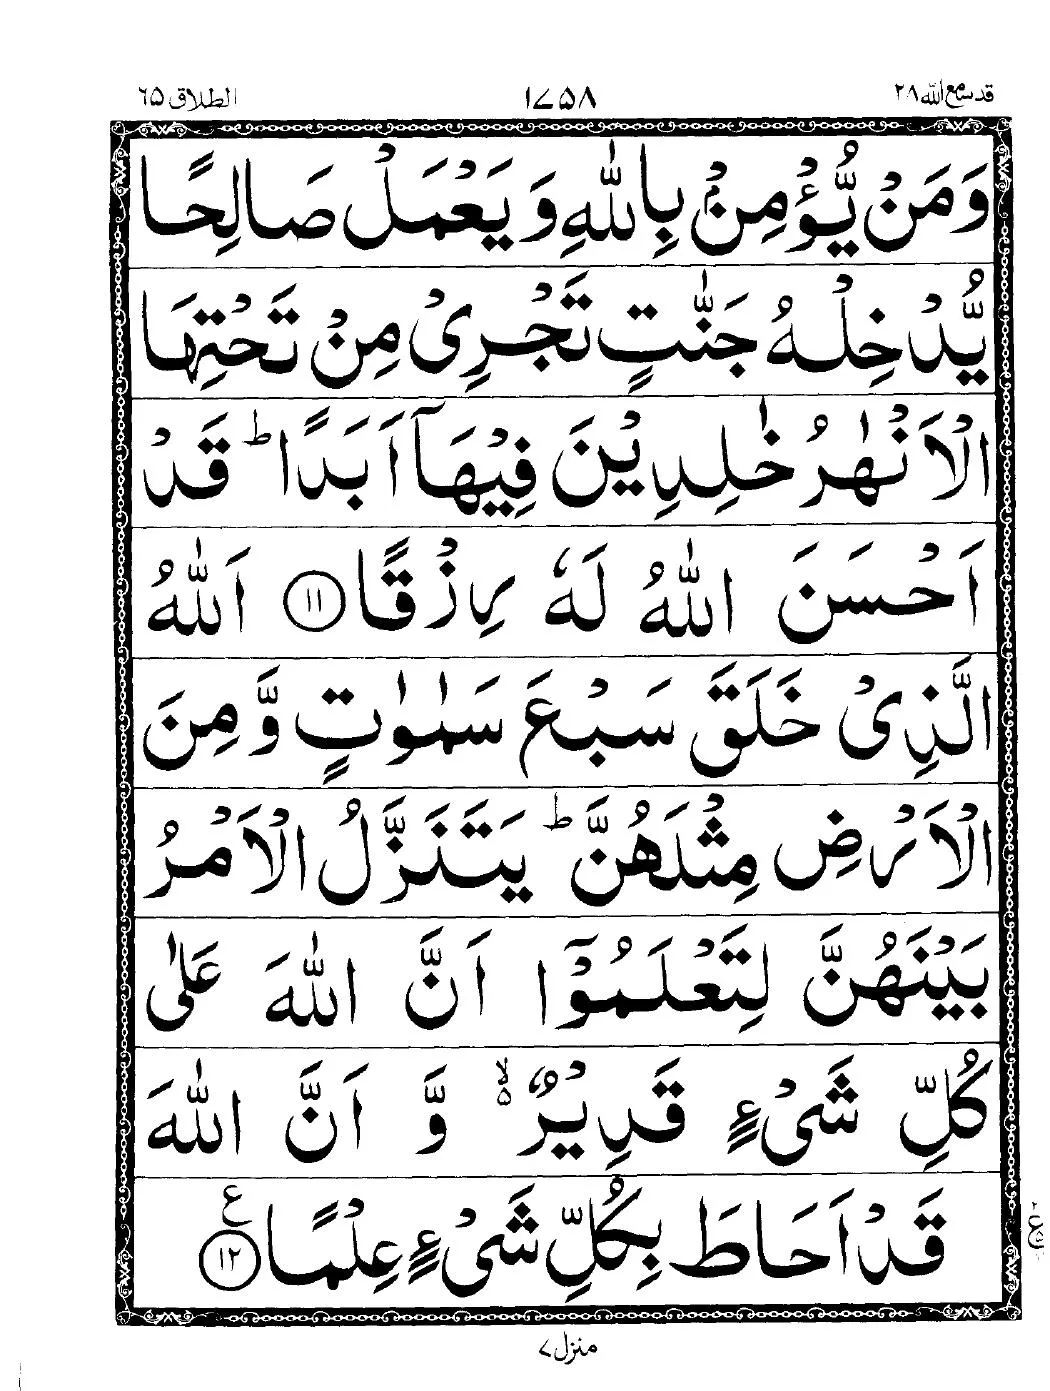 قد سمع الله ٢٨
١٧٥٨
الطلاق ٦٥
وَمَنْ يُّؤْمِنْۢ بِاللّٰهِ وَيَعْمَلْ صَالِحًا
يُّدْخِلْهُ جَنّٰتٍ تَجْرِىْ مِنْ تَحْتِهَا
الْاَنْهٰرُ خٰلِدِيْنَ فِيْهَآ اَبَدًا ؕ قَدْ
اَحْسَنَ اللّٰهُ لَهٗ رِزْقًا ١١ اَللّٰهُ
الَّذِىْ خَلَقَ سَبْعَ سَمٰوٰتٍ وَّمِنَ
الْاَرْضِ مِثْلَهُنَّ ؕ يَتَنَزَّلُ الْاَمْرُ
بَيْنَهُنَّ لِتَعْلَمُوْٓا اَنَّ اللّٰهَ عَلٰى
كُلِّ شَىْءٍ قَدِيْرٌ ۙ۵ وَّ اَنَّ اللّٰهَ
قَدْ اَحَاطَ بِكُلِّ شَىْءٍ عِلْمًا ١٢ ع
منزل ٧